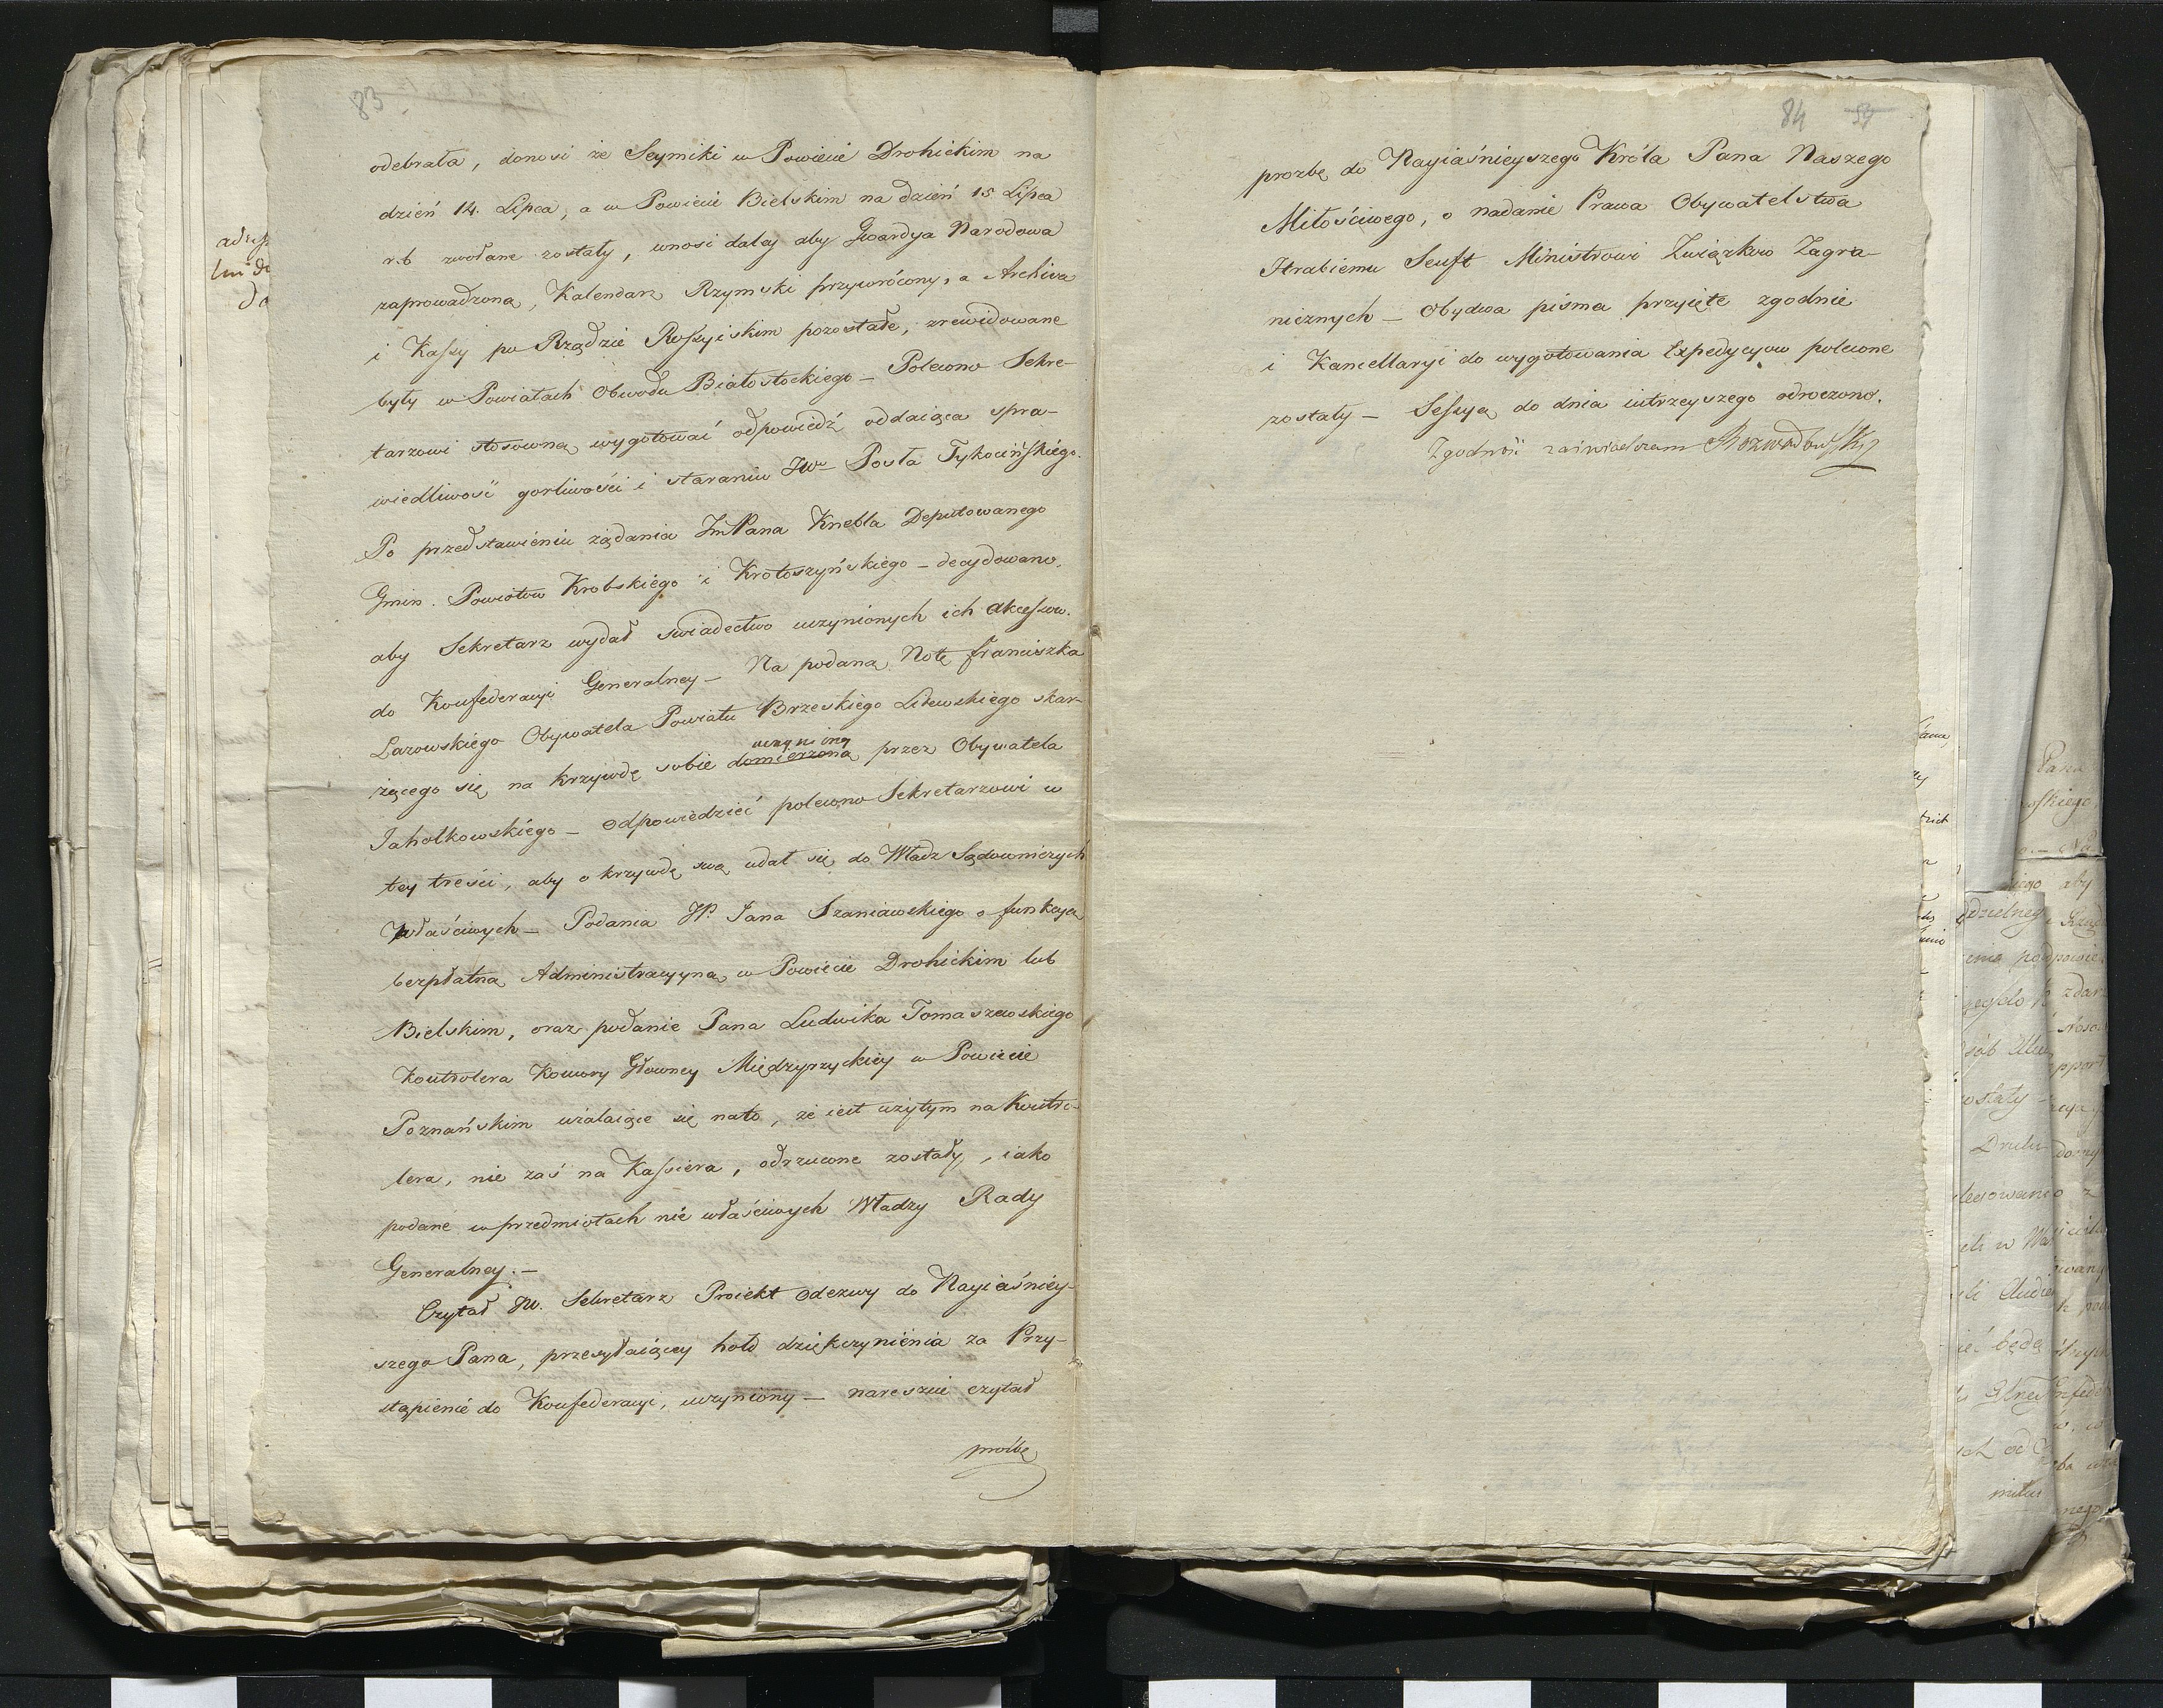 83
odebrała, donosi że Seymiki w Powiecie Drohickim na
dzień 14. Lipca, a w Powiecie Bielskim na dzień 15 Lipca
r.b zwołane zostały, wnosi daley aby Gwardya Narodowa
zaprowadzona, Kalendarz Rzymski przywrócony, a Archiva
i Kassy po Rządzie Rossyiskim pozostałe, zrewidowane
były w Powiatach Obwodu Białostockiego – Polecono Sekre-
tarzowi stosowną wygotować odpowiedź oddaiącą spra-
wiedliwość gorliwości i staraniu JW Posła Tykocińskiego.
Po przedstawieniu żądania JmPana Knebla Deputowanego
Gmin. Powiatow Krobskiego i Krotoszyńskiego – decydowano,
aby Sekretarz wydał swiadectwo uczynionych ich akcessow.
do Konfederacyi Generalney – Na podaną Notę Franciszka
Lazowskiego Obywatela Powiatu Brzeskiego Litewskiego skar-
żącego się na krzywdę sobie domierzoną uczynioną przez Obywatela
Jahołkowskiego – odpowiedzieć polecono Sekretarzowi w
tey treści, aby o krzywdę swą udał się do Władz Sądowniczych
właściwych – Podania JP. Jana Szaniawskiego o funkcyą
bezpłatną Administracyyną w Powiecie Drohickim lub
Bielskim, oraz podanie Pana Ludwika Tomaszewskiego
Kontrolera Komory Głowney Międzyrzyckiey w Powiecie
Poznańskim użalaiące się nato, że iest użytym na Kontro-
lera, nie zaś na Kassiera, odrzucone zostały, iako
podane w przedmiotach nie właściwych Władzy Rady
Generalney. –
Czytał JW. Sekretarz Proiekt Odezwy do Nayiaśniey-
szego Pana, przesyłaiącey hołd dziękczynienia za Przy-
stąpienie do Konfederacyi, uczyniony – nareszcie czytał
proźbę
84
prozbę do Nayiaśnieyszego Króla Pana Naszego
Miłościwego, o nadanie Prawa Obywatelstwa
Hrabiemu Senft Ministrowi Związkow Zagra-
nicznych – Obydwa pisma przyięte zgodnie
i Kancellaryi do wygotowania Expedycyow polecone
zostały – Sessyą do dnia iutrzeyszego odroczono.
Zgodność zaświadczam Rozwadowski